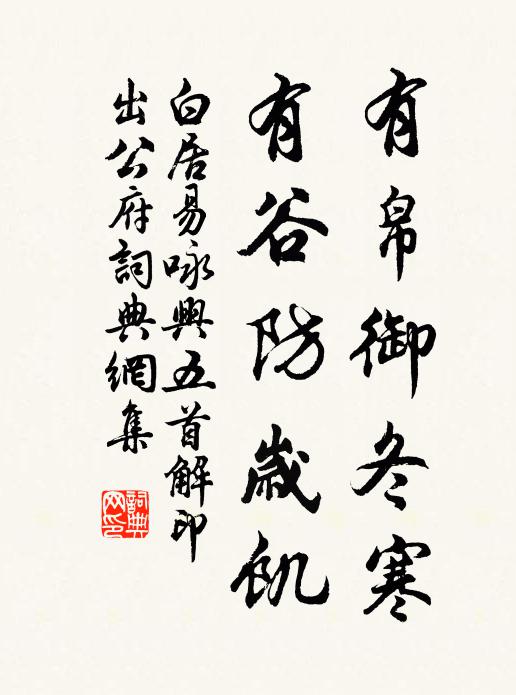 有帛御冬寒
有谷防歲飢
白居易咏興五首解印
出公府詞典網集
詞典
网印